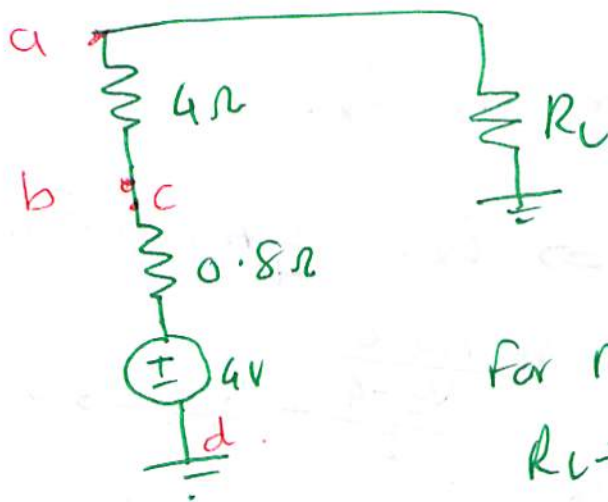 a
4Ω
R_L
b c
0.8Ω
4V
For
d.
R_L